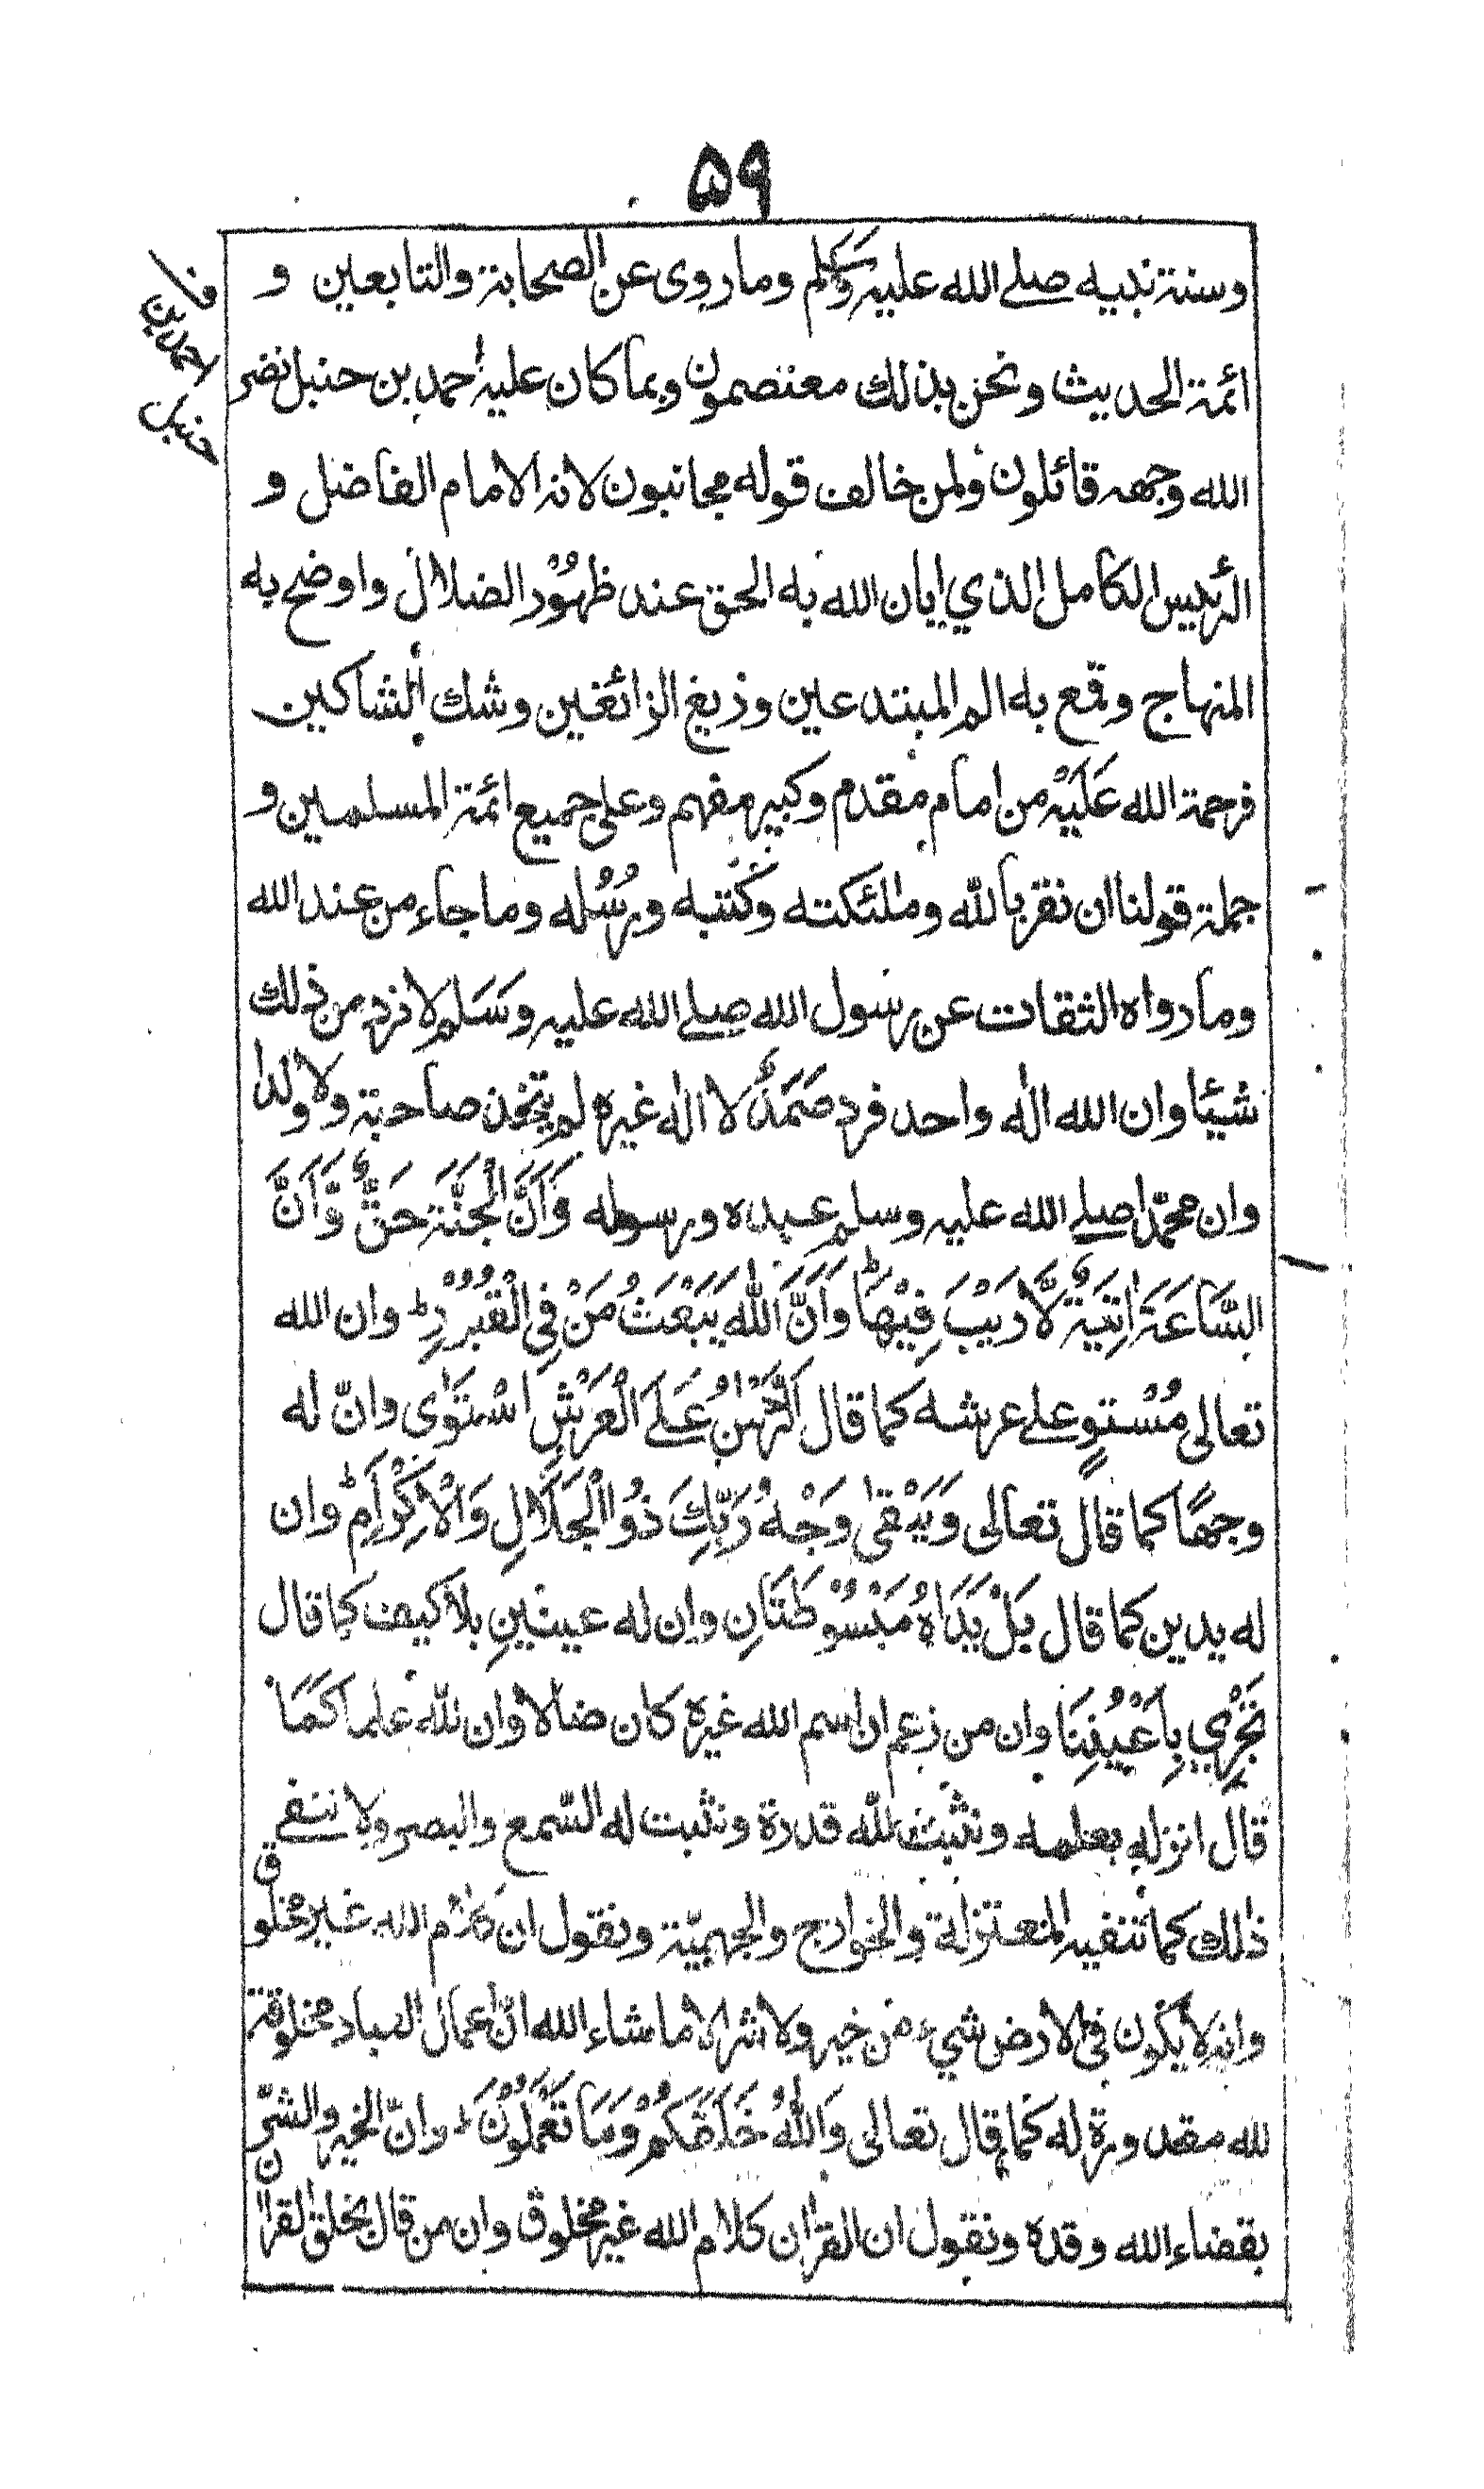 ۵۹
وسنة نبيه صلے الله عليه وسلم وما روى عن الصحابة والتابعين و
ائمة الحديث ونحن بذلك معتصمون وبما كان عليه احمد بن حنبل نضر
الله وجهه قائلون ولمن خالف قوله مجانبون لانه الامام الفاضل و
الرئيس الكامل الذي ابان الله به الحق عند ظهُوْر الضلال واوضح به
المنهاج وقمع به الم المبتدعين وزيغ الزائغين وشك الشاكين
فرحمة الله عَلَيْه من امام مقدم وكبير مفهم وعلى جميع ائمة المسلمين و
جملة قولنا ان نقر بالله وملئكته وكتبه ورسُله وما جاء من عند الله
وما رواه الثقات عن رسول الله صلے الله عليه وسَلم لا نرد من ذلك
شيئا وان الله اله واحد فرد صَمَدٌ لا اله غيره لم يتخذ صاحبة ولا ولدا
وان محمّدا صلے الله عليه وسلم عبده ورسوله وَاَنَّ الْجَنَّةَ حَقٌّ وَّاَنَّ
السَّاعَةَ اٰتِيَةٌ لَّا رَيْبَ فِيْهَا ؕ وَاَنَّ اللهَ يَبْعَثُ مَنْ فِى الْقُبُرْرِ ؕ وان الله
تعالى مُسْتوٍ على عرشه كما قال اَلرَّحْمٰنُ عَلَے الْعَرْشِ اسْتَوٰى وانّ له
وجهًا كما قال تعالى وَيَبْقٰى وَجْهُ رَبِّكَ ذُو الْجَلَالِ وَالْاِكْرَامِ ؕ وان
له يدين كما قال بَلْ يَدَاهُ مَبْسُوْطَتَانِ وان له عينينِ بلا كيف كما قال
تَجْرِيْ بِاَعْيُنِنَا وان من زعم ان اسم الله غيره كان ضالا وان لله علما كَمَا
قال انزله بعلمه ونثبت لله قدرة ونثبت له السّمع والبصر ولا ننفے
ذلك كما تنفيه المعتزلة والخوارج والجهميّة ونقول ان كلام الله غير مخلوق
وانه لا يكون فى الارض شيء من خير ولا شر الا ما شاء الله انّ اعمال العباد مخلوقة
لله مقدورة له كما قال تعالى وَاللهُ خَلَقَكُمْ وَمَا تَعْمَلُوْنَ ؕ وانّ الخير والشرّ
بقضاء الله وقدره ونقول ان القران كلام الله غير مخلوق وان من قال بخلق القران
ف
احمد بن
حنبل